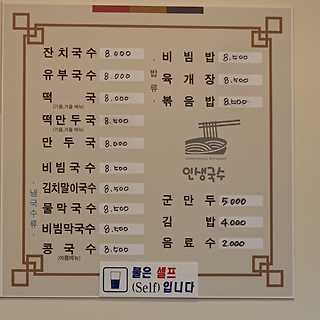 잔치국수 8.000
유부국수 8.000
떡국 8.000
(가을,겨울 메뉴)
떡만두국 8.500
(가을,겨울 메뉴)
만두국 8.000
·냉국수류·
비빔국수 8.500
김치말이국수 8.500
물막국수 8.500
비빔막국수 8.500
콩국수 8.500
(여름메뉴)
·밥류·
비빔밥 8.500
육개장 8.500
볶음밥 8.500
인생국수
군만두 5000
김밥 4000
음료수 2000
물은 셀프
(Self)입니다